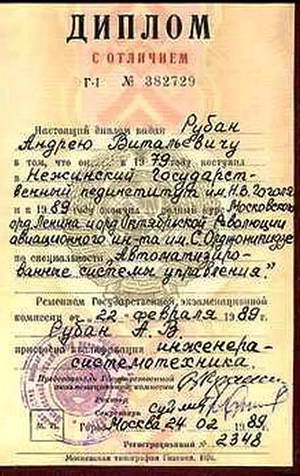 ДИПЛОМ
С ОТЛИЧИЕМ
Г-I № 382729
Настоящий диплом выдан Рубан
Андрею Витальевичу
в том, что он в 1979 году поступил
в Нежинский Государст-
венный пединститут им. Н.В. Гоголя
и в 1989 году окончил полный курс Московского
орд. Ленина и орд. Октябрьской Революции
авиационного ин-та им. С. Орджоникидзе
по специальности „Автоматизиро-
ванные системы управления."
Решением Государственной экзаменационной
комиссии от 22 февраля 1989 г.
Рубан А.В.
присвоена квалификация инженера-
системотехника.
Председатель Государственной
экзаменационной комиссии
Ректор
Секретарь
М. П. Город Москва 24 02 1989.
Регистрационный № 2348
Московская типография Гознака. 197